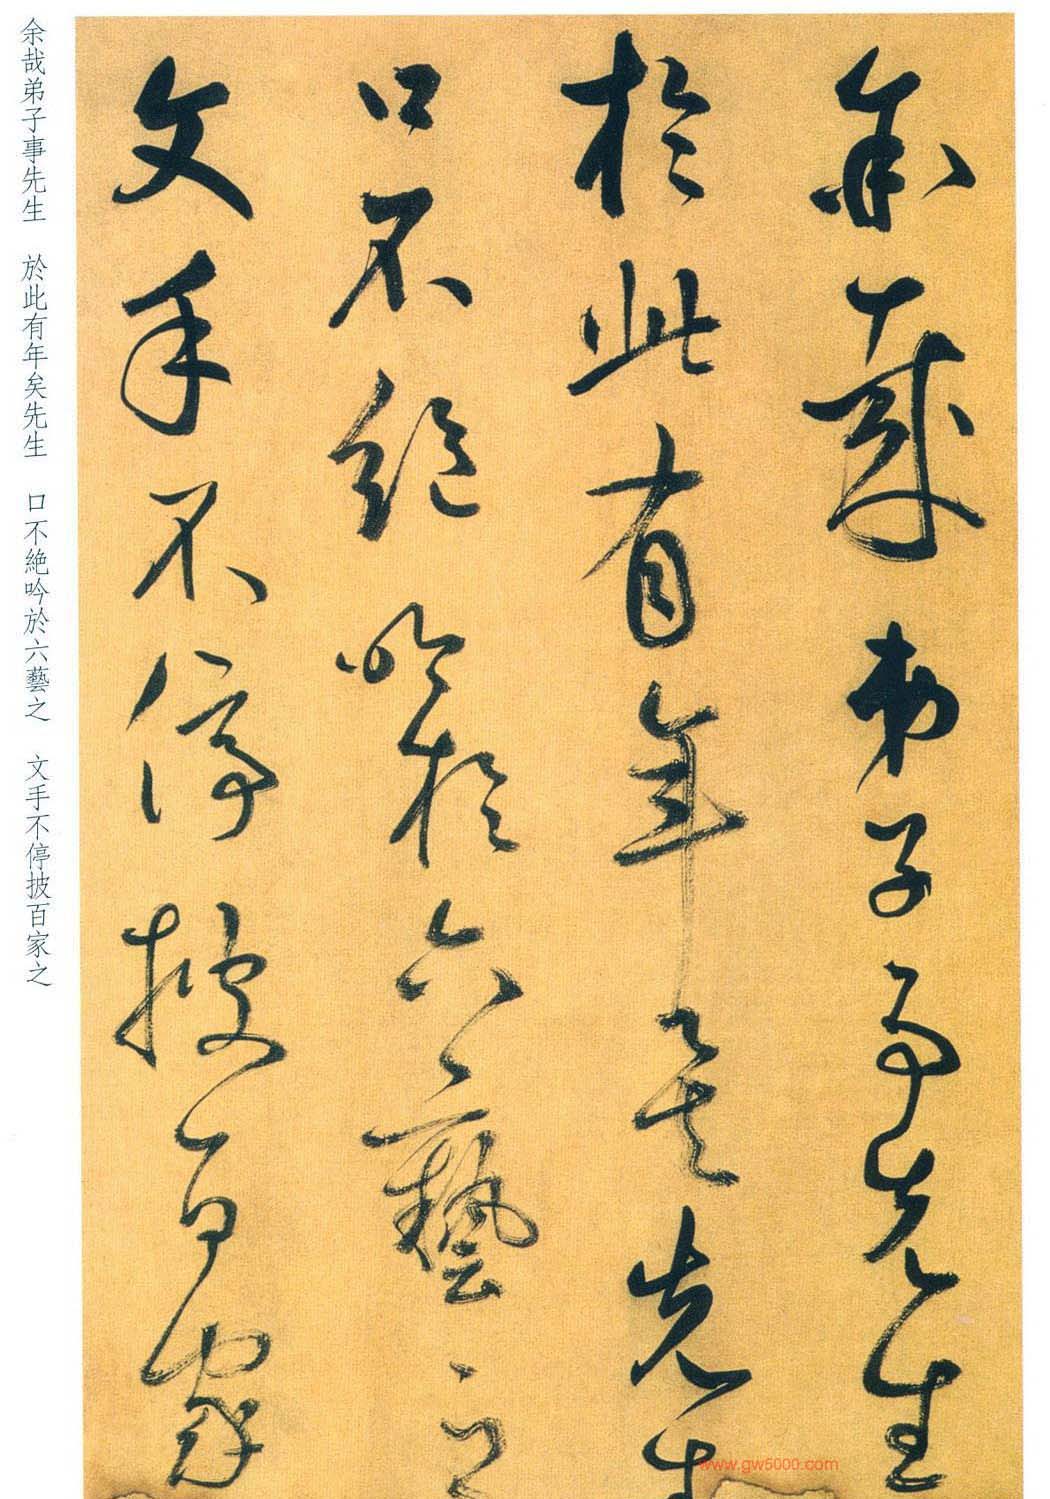 余哉弟子事先生
於此有年矣先生
口不絶吟於六藝之
文手不停披百家
余哉弟子事先生　於此有年矣先生　口不絶吟於六藝之　文手不停披百家之
www.gw5000.com